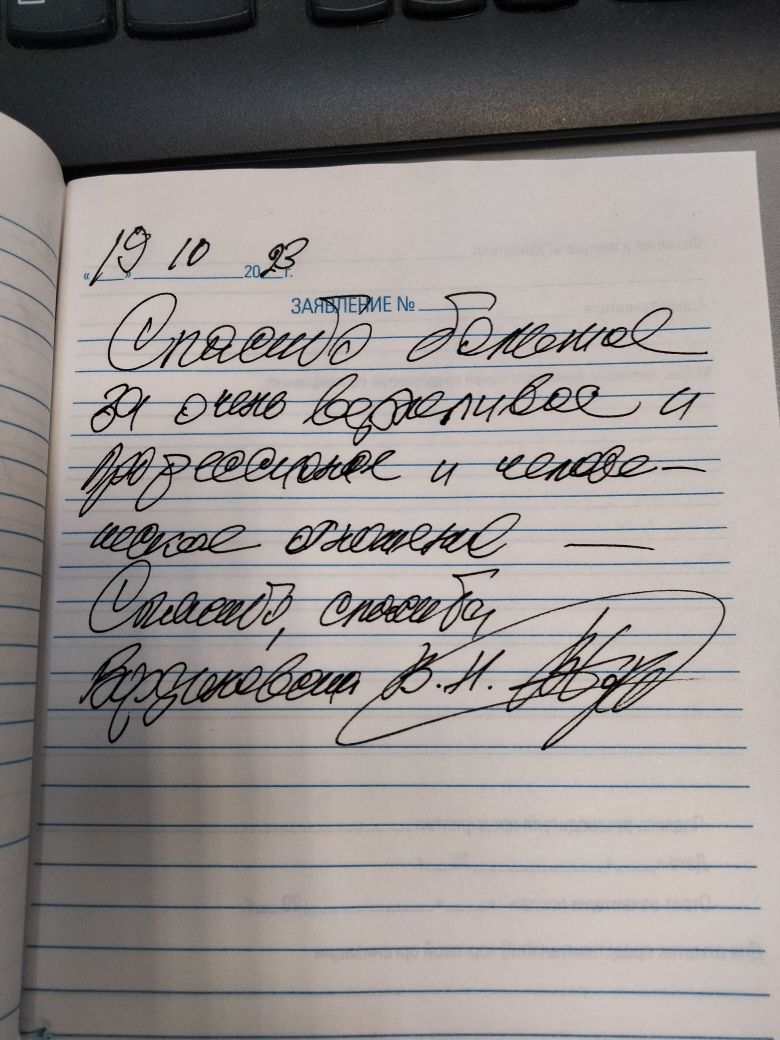 «19» 10 2023г.
ЗАЯВЛЕНИЕ №
Спасибо большое
за очень вежливое и
профессионое и челове-
ческое отношение —
Спасибо, спасибо
В.Н.